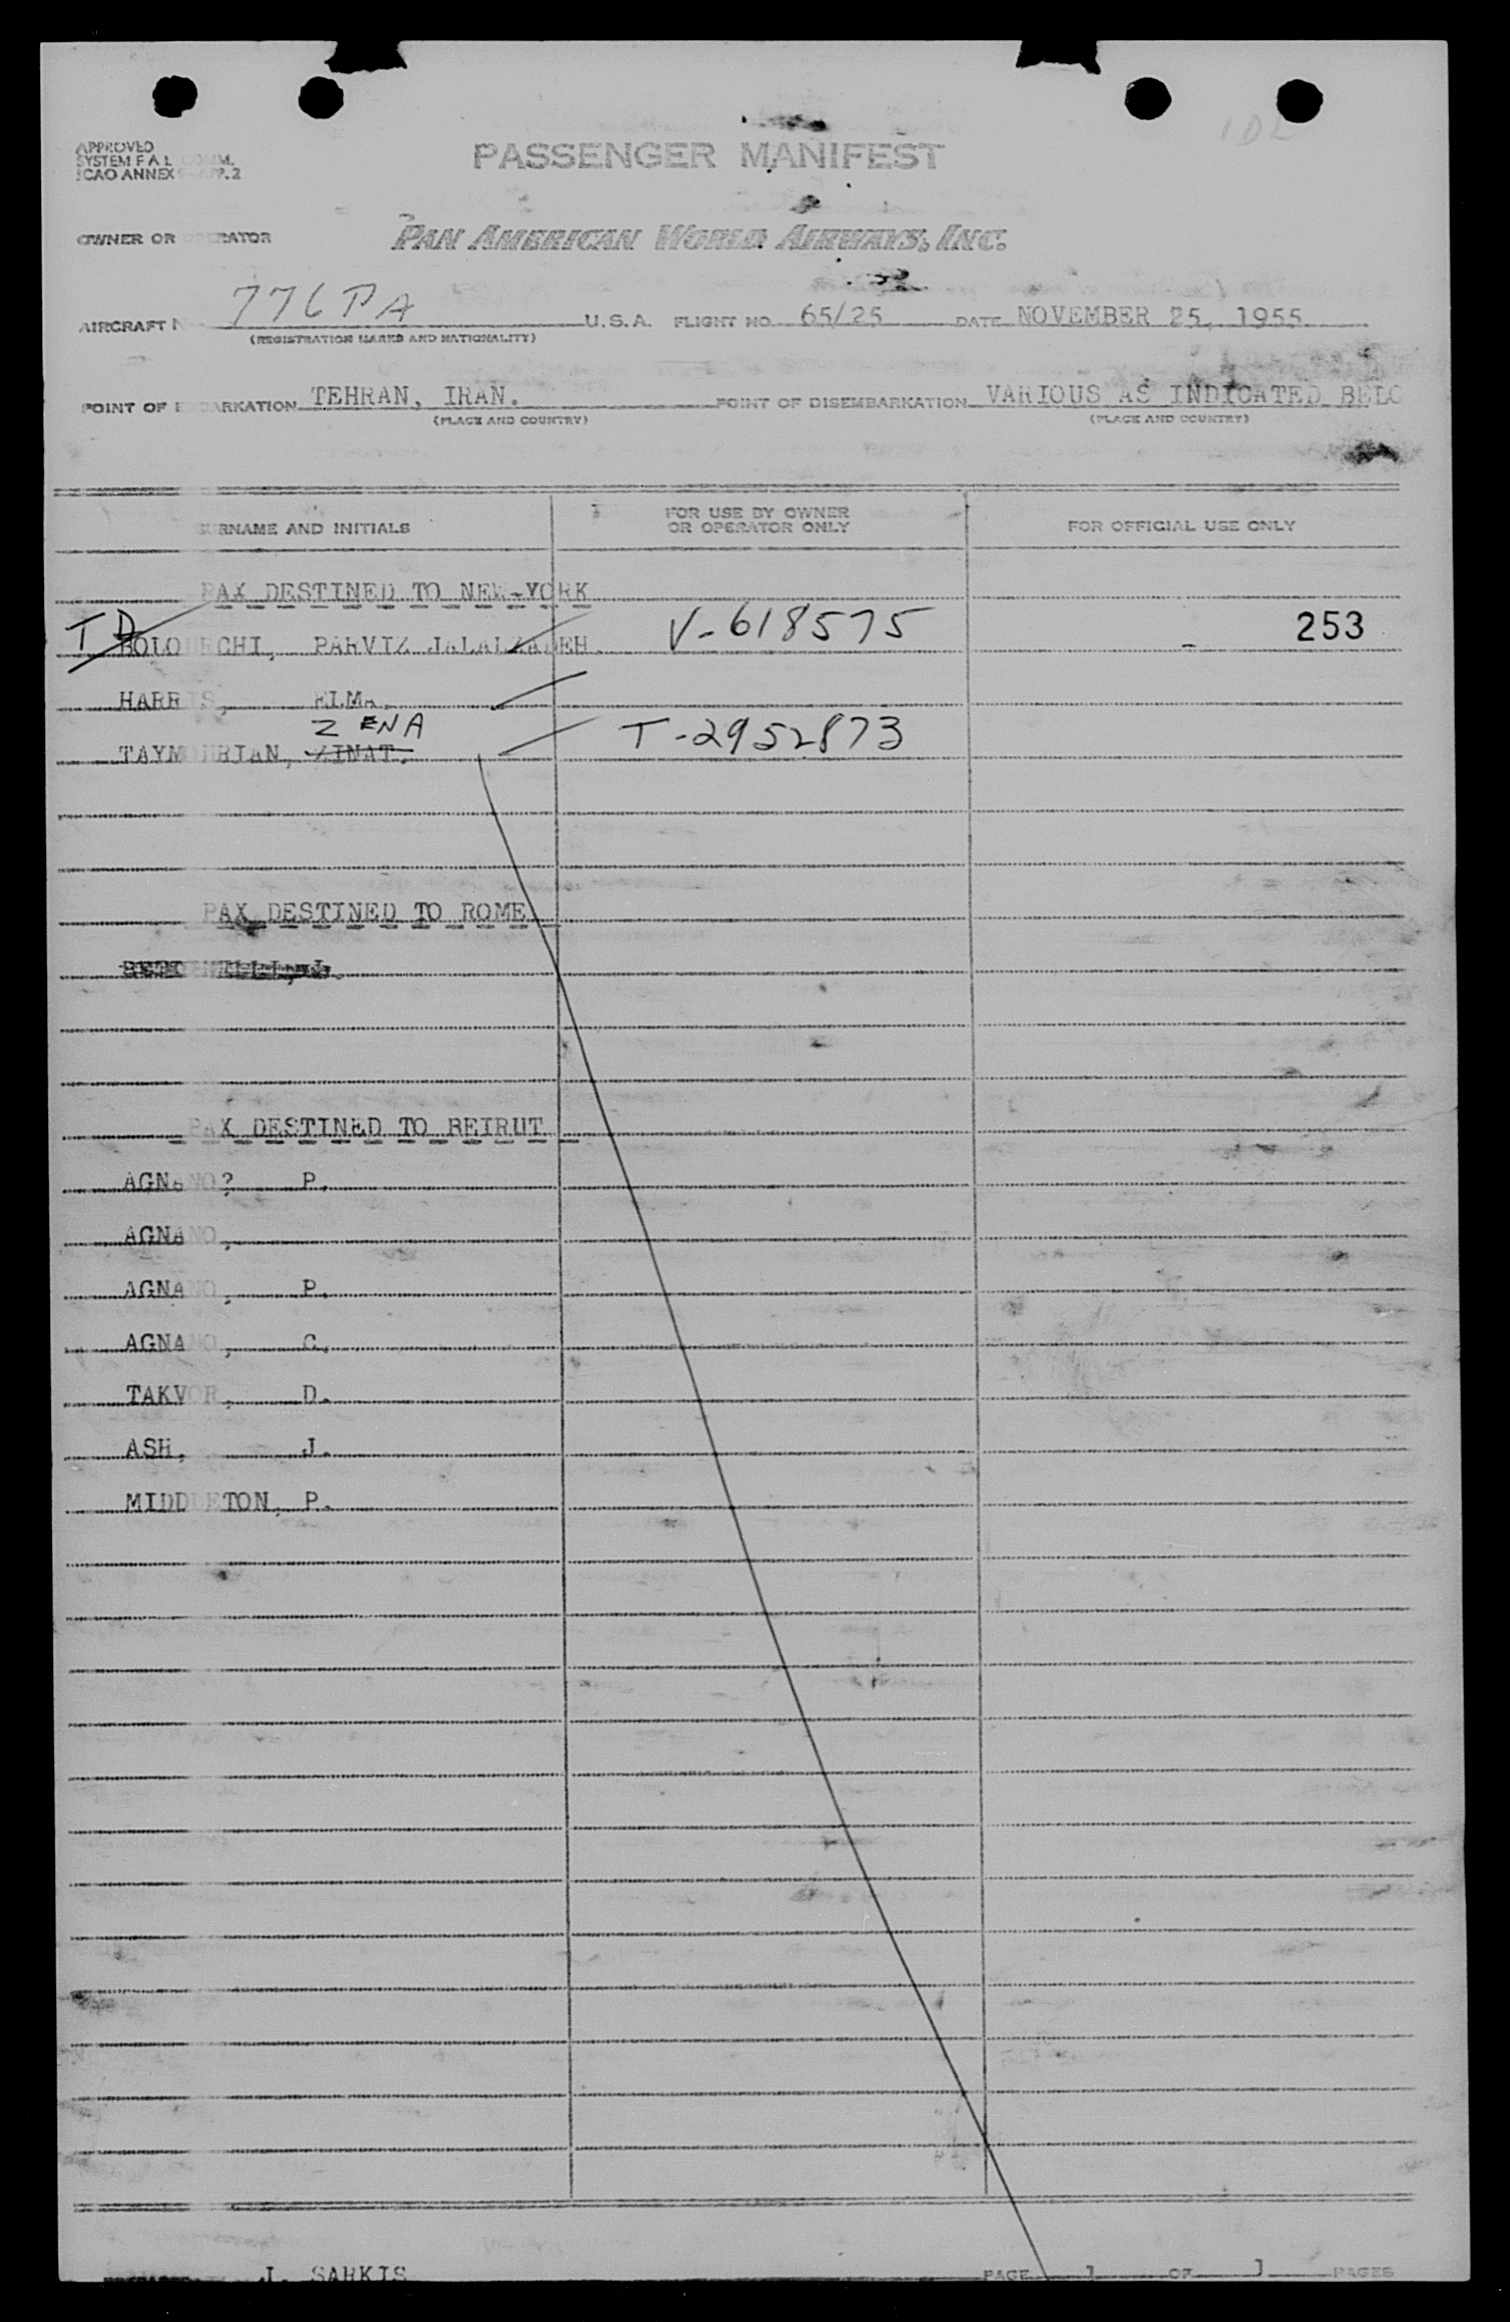 APPROVED
SYSTEM F A L COMM.
ICAO ANNEX 9 APP. 2
PASSENGER MANIFEST
OWNER OR OPERATOR PAN AMERICAN WORLD AIRWAYS, INC.
AIRCRAFT N 776PA U.S.A. FLIGHT NO. 65/25 DATE NOVEMBER 25, 1955
(REGISTRATION MARKS AND NATIONALITY)
POINT OF EMBARKATION TEHRAN, IRAN. POINT OF DISEMBARKATION VARIOUS AS INDICATED BELO
(PLACE AND COUNTRY) (PLACE AND COUNTRY)
SURNAME AND INITIALS FOR USE BY OWNER OR OPERATOR ONLY FOR OFFICIAL USE ONLY
PAX DESTINED TO NEW-YORK
TD PARVIZ JALALZADEH. V-618575 253
HARRIS, ELMA.
ZENA
TAYMOURIAN, ZINAT. T-2952873
PAX DESTINED TO ROME
PAX DESTINED TO BEIRUT
AGNANO? P.
AGNANO,
AGNANO, P.
AGNANO, C.
TAKVOR, D.
ASH, J.
MIDDLETON, P.
J. SARKIS PAGE 1 OF 1 PAGES